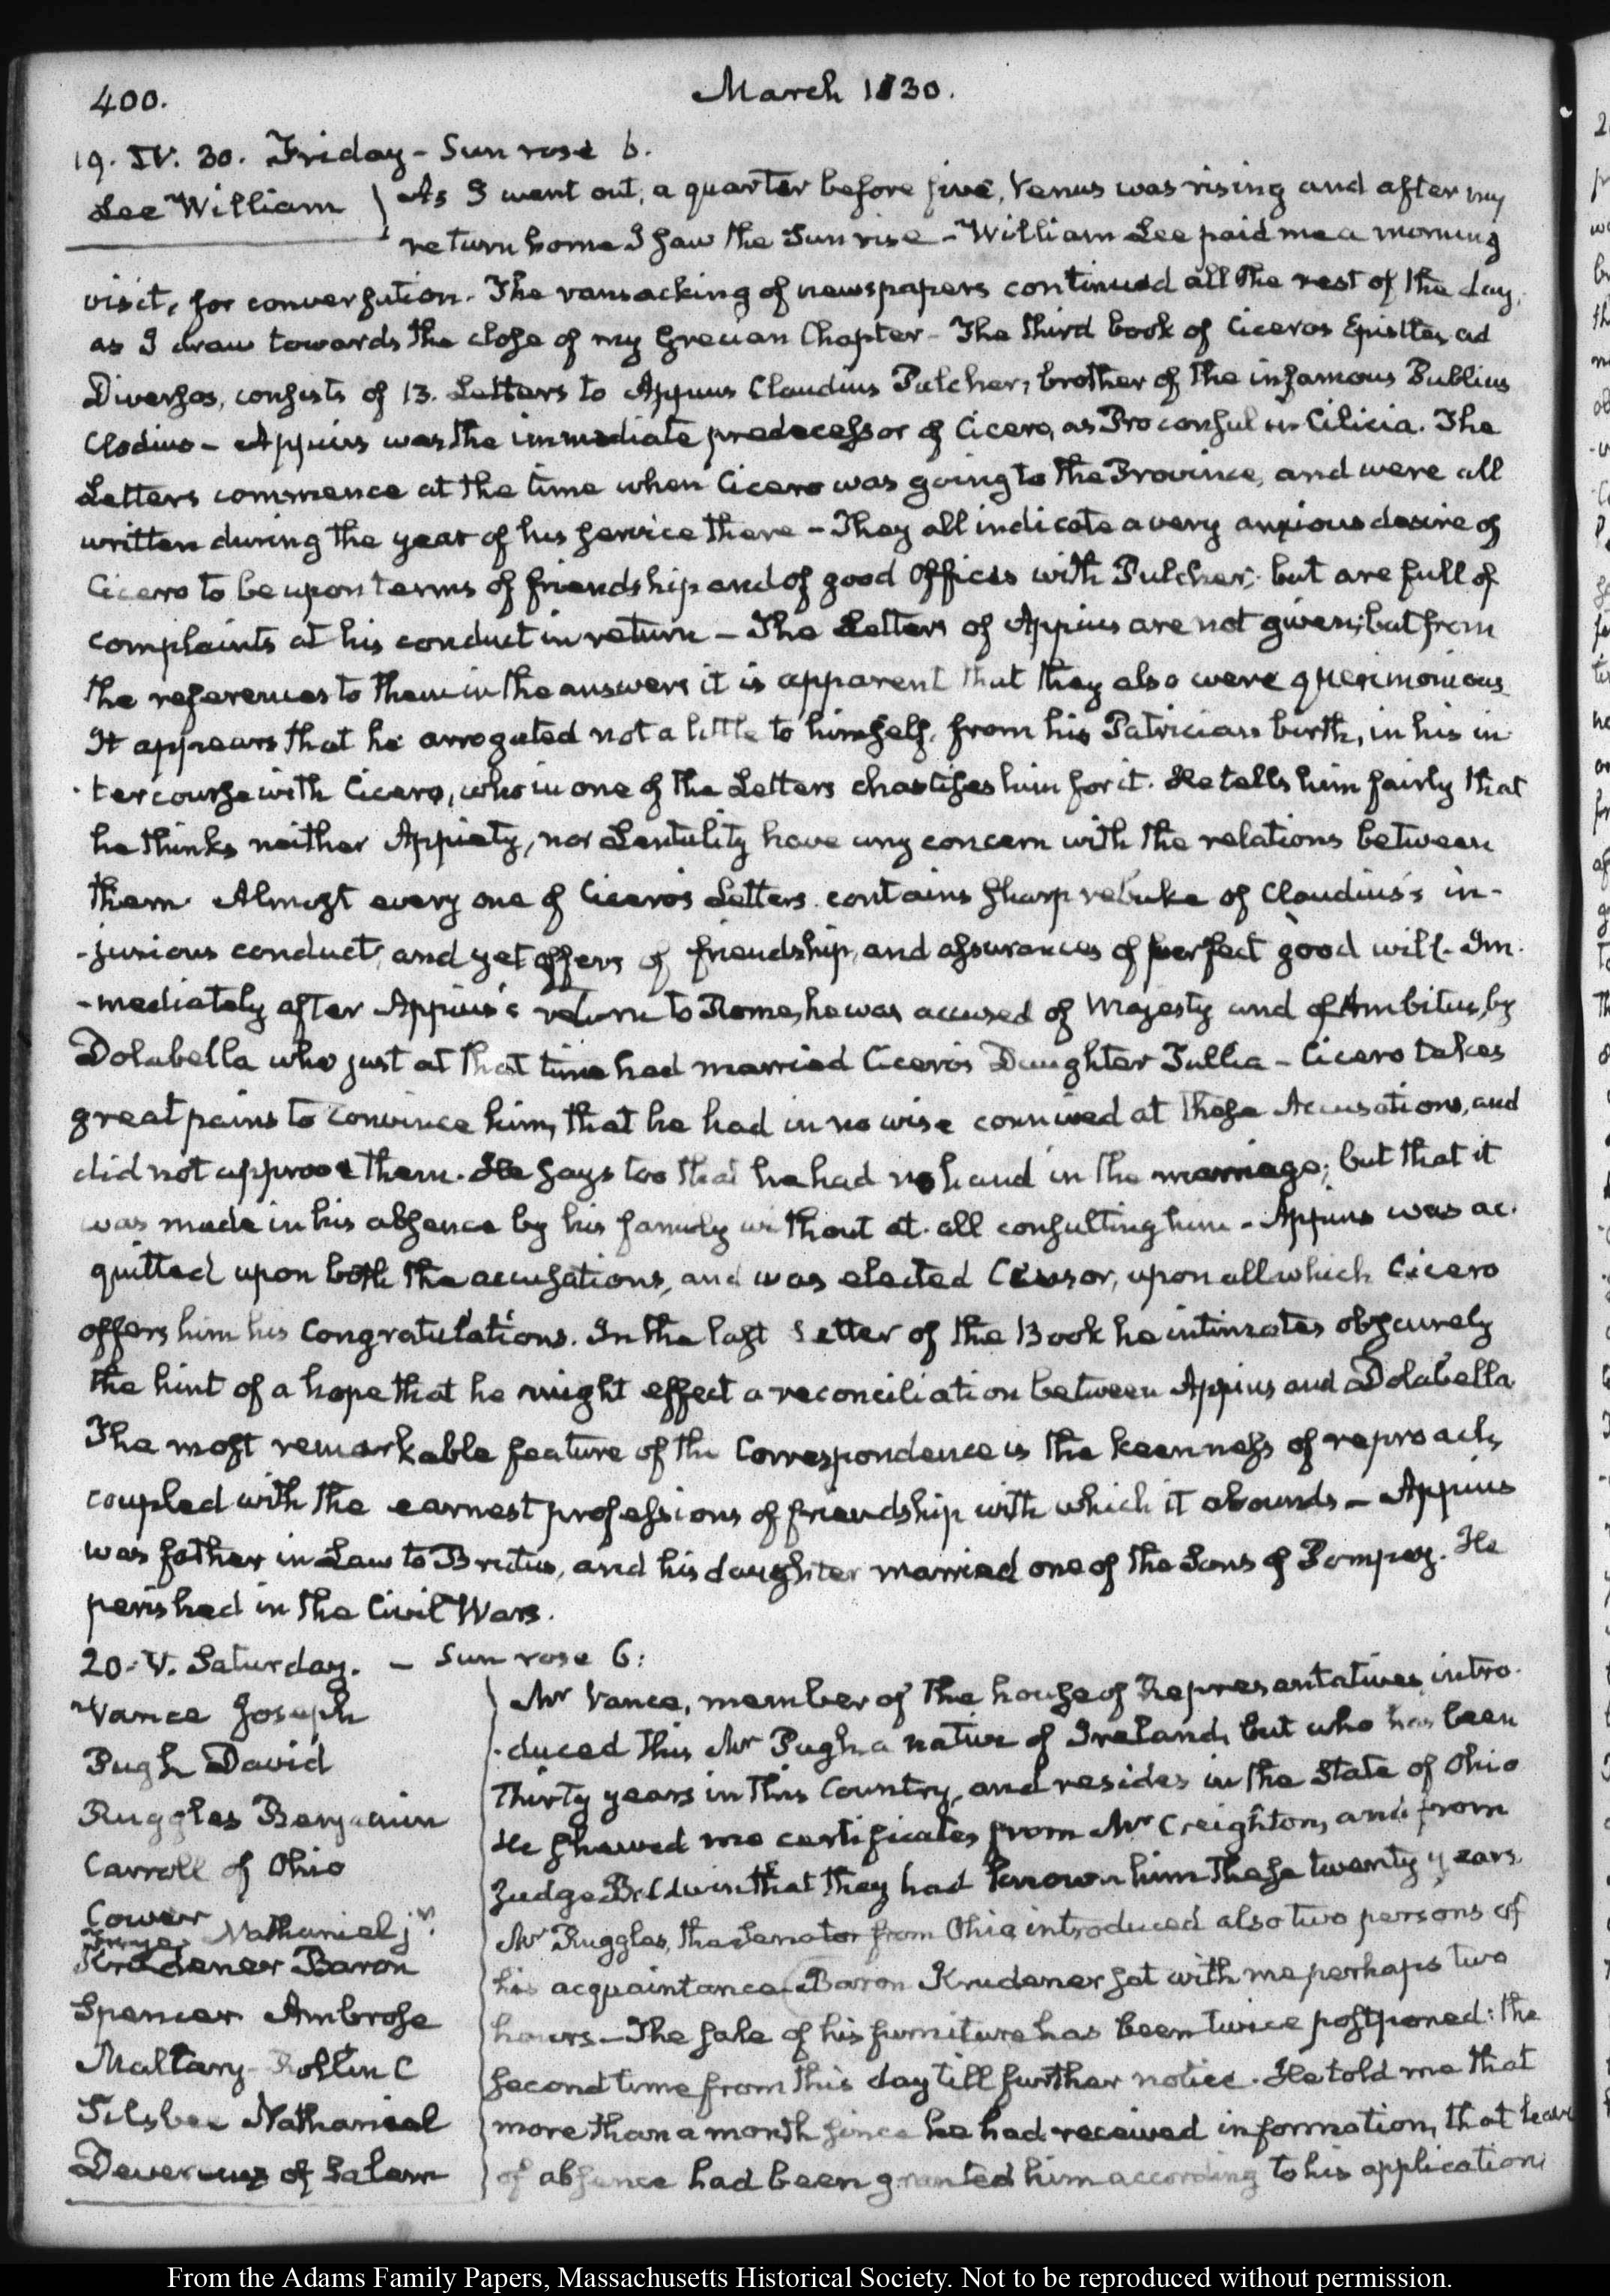 400.
March 1830.
19. IV. 30. Friday - Sun rose 6.
Lee William
As I went out, a quarter before five, Venus was rising and after my
return home I saw the Sun rise - William Lee paid me a morning
visit, for conversation. The ransacking of newspapers continued all the rest of the day,
as I draw towards the close of my Grecian Chapter - The third book of Ciceros Epistles, ad
Diversos, consists of 13. Letters to Appius Claudius Pulcher, brother of the infamous Publius
Clodius - Appius was the immediate predecessor of Cicero, as Proconsul in Cilicia. The
Letters commence at the time when Cicero was going to the Province, and were all
written during the year of his service there - They all indicate a very anxious desire of
Cicero to be upon terms of friendship and of good Offices with Pulcher; but are full of
complaints at his conduct in return - The Letters of Appius are not given; but from
the references to them in the answers it is apparent that they also were querimonious
It appears that he arrogated not a little to himself, from his Patrician birth, in his in
-tercourse with Cicero, who in one of the Letters chastises him for it. He tells him fairly that
he thinks neither Appiety, nor Lentulity have any concern with the relations between
them. Almost every one of Cicero's Letters contains sharp rebuke of Claudius's in-
-jurious conduct, and yet offers of friendship, and assurances of perfect good will. Im-
-mediately after Appius's return to Rome, he was accused of Majesty and of Ambitus, by
Dolabella who just at that time had married Cicero's Daughter Tullia - Cicero takes
great pains to convince him, that he had in no wise connived at these Accusations, and
did not approve them. He says too that he had no hand in the marriage; but that it
was made in his absence by his family without at all consulting him - Appius was ac-
quitted upon both the accusations, and was elected Censor, upon all which Cicero
offers him his Congratulations. In the last Letter of the Book he intimates obscurely
the hint of a hope that he might effect a reconciliation between Appius and Dolabella
The most remarkable feature of the Correspondence is the keenness of reproach,
coupled with the earnest professions of friendship with which it abounds - Appius
was father in Law to Brutus, and his daughter married one of the Sons of Pompey. He
perished in the Civil Wars.
20. V. Saturday. - Sun rose 6:
Vance Joseph
Pugh David
Ruggles Benjamin
Carroll of Ohio
Cower
Nathaniel jr.
Krudener Baron
Spencer Ambrose
Mallary Rollin C
Silsbee Nathaniel
Devereux of Salem
Mr Vance, member of the house of Representatives, intro-
-duced this Mr Pugh a native of Ireland, but who has been
thirty years in this Country, and resides in the State of Ohio
He shewed me certificates from Mr Creighton, and from
Judge Baldwin that they had known him these twenty years.
Mr Ruggles, the Senator from Ohio, introduced also two persons of
his acquaintance. Baron Krudener sat with me perhaps two
hours - The sale of his furniture has been twice postponed: the
second time from this day till further notice. He told me that
more than a month since he had received information, that leave
of absence had been granted him according to his application
From the Adams Family Papers, Massachusetts Historical Society. Not to be reproduced without permission.